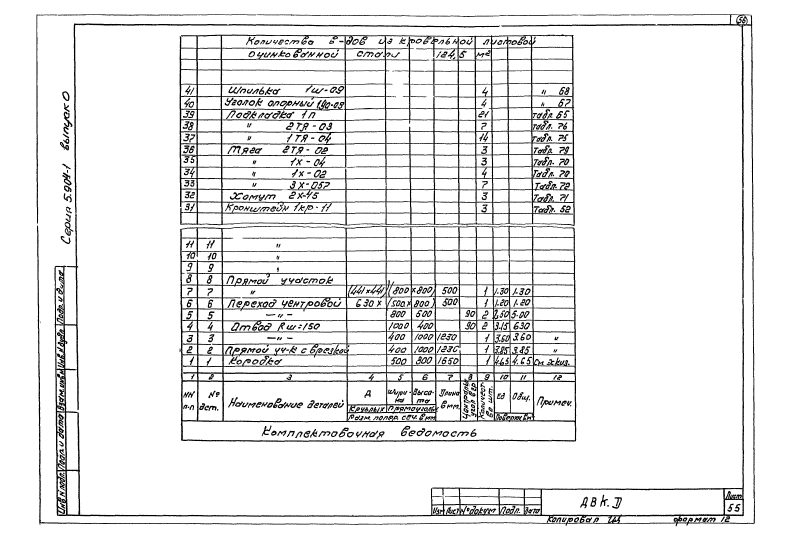 56
Количества в-дов из кровельной листовой
оцинкованной стали 184,5 м²
41 Шпилька 1ш-09 4 " 68
40 Уголок опорный 4 " 67
39 Подкладка 1п 21 Табл. 65
38 " 2ТЯ-03 7 Табл. 76
37 " 1ТЯ-04 14 Табл. 75
36 Тяга 2ТЯ-02 3 Табл. 79
35 " 1х-04 3 Табл. 70
34 " 1х-02 4 Табл. 70
33 " 3х-057 7 Табл. 72
32 Хомут 2х-45 3 Табл. 71
31 Кронштейн 1кр-11 3 Табл. 52
11 11 "
10 10 "
9 9 "
8 8 Прямой участок
7 7 " (441×441) (800×800) 500 1 1.30 1.30
6 6 Переход центровой 630× (500×800) 500 1 1.20 1.20
5 5 —"— 800 500 90 2 2.50 5.00
4 4 Отвод Rш=150 1000 400 90 2 3.15 6.30
3 3 —"— 400 1000 1230 1 3.60 3.60 "
2 2 Прямой уч-к с врезкой 400 1000 1235 1 3.85 3.85 "
1 1 Коробка 500 800 1650 1 4.65 4.65 См эскиз.
1 2 3 4 5 6 7 8 9 10 11 12
NN п-п № дет. Наименование деталей Д Ширина Высота Длина в мм. Централь. угол в гр Количест-во шт. Ед Общ. Примеч.
Круглых Прямоугольн
Разм. попер. сеч. в мм Поверхн. м²
Комплектовочная ведомость
Серия 5.904-1 выпуск 0
Инв N подл. Подп. и дата Взам. инв N Инв N дубл. Подп. и дата
Изм Лист № докум Подп. Дата
ДВК.Д
Лист
55
Копировал
формат 12